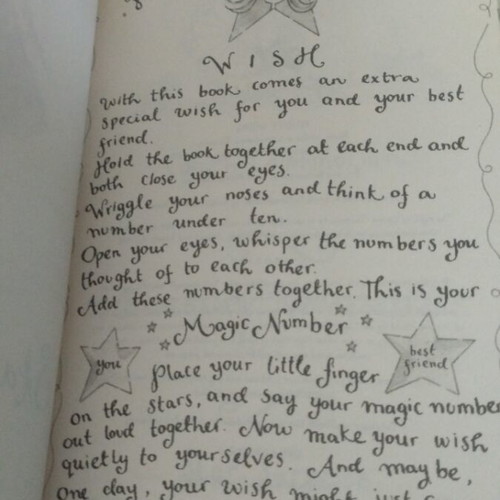 WISH
With this book comes an extra
special wish for you and your best
friend.
Hold the book together at each end and
both close your eyes.
Wriggle your noses and think of a
number under ten.
Open your eyes, whisper the numbers you
thought of to each other.
Add these numbers together. This is your
Magic Number
you
best
friend
Place your little finger
on the stars, and say your magic number
out loud together. Now make your wish
quietly to yourselves. And maybe,
one day, your wish might just